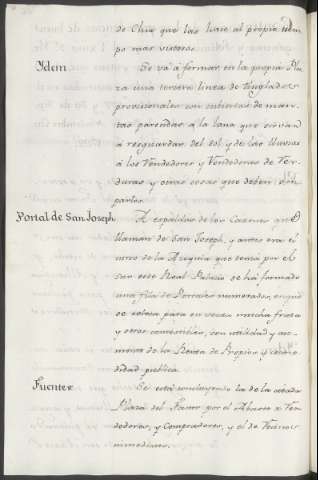 de Chia que las hace al propio tiem
po mas vistosas.
Ydem Se vá à formar en la propia Pla
za una tercera linea de tinglados
provisionales con cubiertas de man
tas parecidas à la lana que sirvan
à resguardar del sol y de las lluvias
à los Vendedores y Vendedoras de Ver
duras y otras cosas que deben
Portal de San Joseph. A espaldas de los Caxones que
llaman de San Joseph, y antes era el
cerco de la Azequia que venia por el
sur este Real Palacio se há formado
una fila de Portales numerados, en que
se coloca para su venta mucha fruta
y otros comestibles, con utilidad y au-
mento de la Renta de Propios y como
didad publica.
Fuentes Se está concluyendo la de la citada
Plaza del Factor por el Abasto à Ven
dedores, y Compradores, y el de Vecinos
inmediatos.